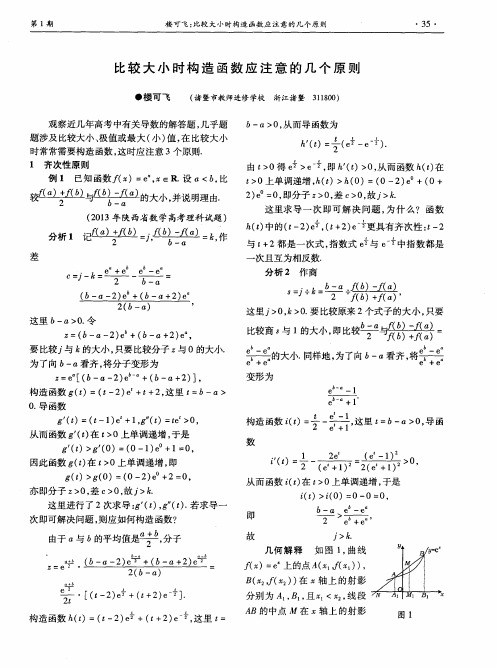 第1期
楼可飞:比较大小时构造函数应注意的几个原则
·35·
比较大小时构造函数应注意的几个原则
●楼可飞 (诸暨市教师进修学校 浙江诸暨 311800)
观察近几年高考中有关导数的解答题,几乎题
题涉及比较大小、极值或最大(小)值,在比较大小
时常常需要构造函数,这时应注意3个原则.
1 齐次性原则
例1 已知函数f(x)=e^x,x∈R.设a<b,比
较(f(a)+f(b))/2与(f(b)-f(a))/(b-a)的大小,并说明理由.
(2013年陕西省数学高考理科试题)
分析1 记(f(a)+f(b))/2=j,(f(b)-f(a))/(b-a)=k,作
差
c=j-k=(e^a+e^b)/2-(e^b-e^a)/(b-a)=
((b-a-2)e^b+(b-a+2)e^a)/(2(b-a)),
这里b-a>0.令
z=(b-a-2)e^b+(b-a+2)e^a,
要比较j与k的大小,只要比较分子z与0的大小.
为了向b-a看齐,将分子变形为
z=e^a[(b-a-2)e^(b-a)+(b-a+2)],
构造函数g(t)=(t-2)e^t+t+2,这里t=b-a>
0.导函数
g′(t)=(t-1)e^t+1,g″(t)=te^t>0,
从而函数g′(t)在t>0上单调递增,于是
g′(t)>g′(0)=(0-1)e^0+1=0,
因此函数g(t)在t>0上单调递增,即
g(t)>g(0)=(0-2)e^0+2=0,
亦即分子z>0,差c>0,故j>k.
这里进行了2次求导:g′(t),g″(t).若求导一
次即可解决问题,则应如何构造函数?
由于a与b的平均值是(a+b)/2,分子
z=e^((a+b)/2)·((b-a-2)e^((b-a)/2)+(b-a+2)e^((a-b)/2))/(2(b-a))=
e^((a+b)/2)/(2t)·[(t-2)e^(t/2)+(t+2)e^(-t/2)].
构造函数h(t)=(t-2)e^(t/2)+(t+2)e^(-t/2),这里t=
b-a>0,从而导函数为
h′(t)=t/2(e^(t/2)-e^(-t/2)).
由t>0得e^(t/2)>e^(-t/2),即h′(t)>0,从而函数h(t)在
t>0上单调递增,h(t)>h(0)=(0-2)e^0+(0+
2)e^0=0,即分子z>0,差c>0,故j>k.
这里求导一次即可解决问题,为什么?函数
h(t)中的(t-2)e^(t/2),(t+2)e^(-t/2)更具有齐次性:t-2
与t+2都是一次式,指数式e^(t/2)与e^(-t/2)中指数都是
一次且互为相反数.
分析2 作商
s=j÷k=(b-a)/2÷(f(b)-f(a))/(f(b)+f(a)),
这里j>0,k>0.要比较原来2个式子的大小,只要
比较商s与1的大小,即比较(b-a)/2与(f(b)-f(a))/(f(b)+f(a))=
(e^b-e^a)/(e^b+e^a)的大小.同样地,为了向b-a看齐,将(e^b-e^a)/(e^b+e^a)
变形为
(e^(b-a)-1)/(e^(b-a)+1).
构造函数i(t)=t/2-(e^t-1)/(e^t+1),这里t=b-a>0,导函
数
i′(t)=1/2-2e^t/(e^t+1)^2=(e^t-1)^2/(2(e^t+1)^2)>0,
从而函数i(t)在t>0上单调递增,于是
i(t)>i(0)=0-0=0,
即 (b-a)/2>(e^b-e^a)/(e^b+e^a),
故 j>k.
几何解释 如图1,曲线
f(x)=e^x上的点A(x₁,f(x₁)),
B(x₂,f(x₂))在x轴上的射影
分别为A₁,B₁,且x₁<x₂,线段
AB的中点M在x轴上的射影
y
B
M
A
A₁ M₁ B₁ x
图1